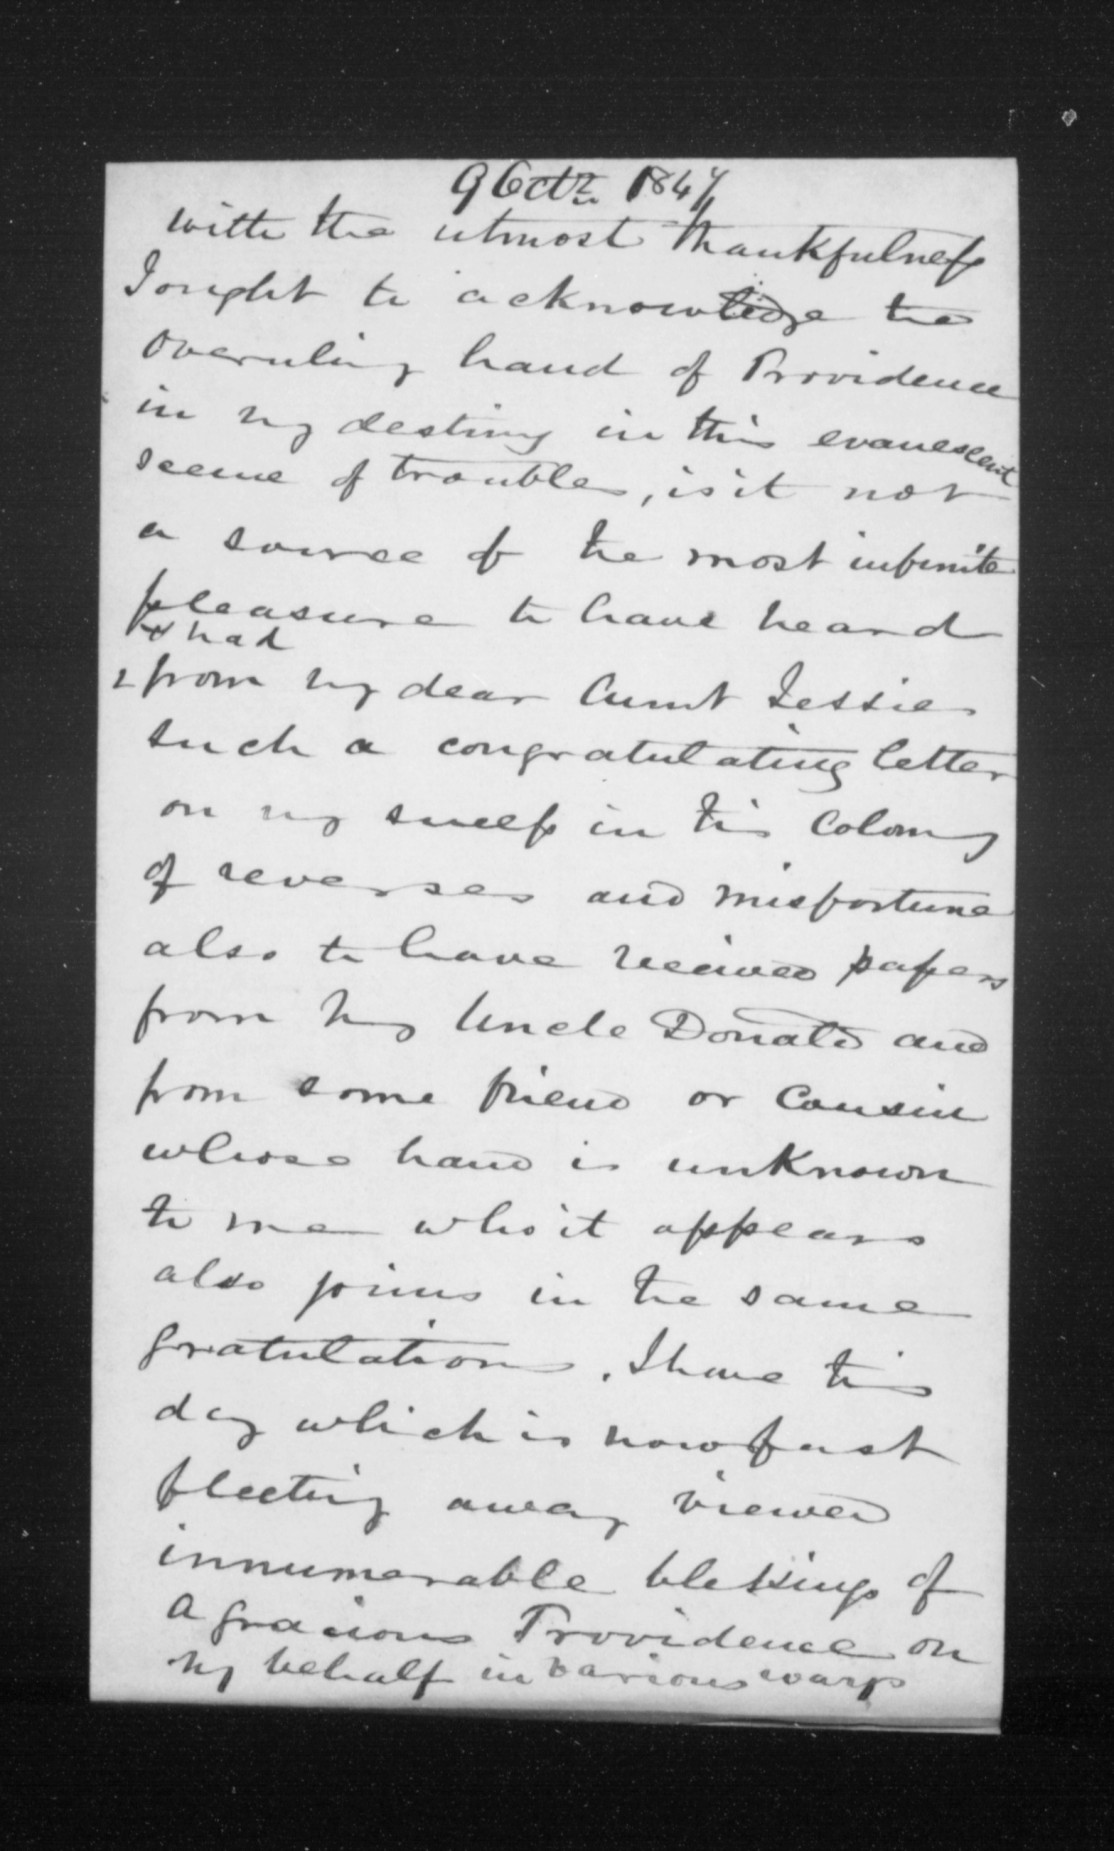 9 Octr. 1847
with the utmost thankfulness
I ought to acknowledge the
overuling hand of Providence
in my destiny in this evanescent
scene of troubles, is it not
a source of the most infinite
pleasure to have heard
& had
from my dear Aunt Jessie
such a congratulating letter
on my success in this Colony
of reverses and misfortune
also to have received papers
from my Uncle Donald and
from some friend or Cousin
whose hand is unknown
to me who it appears
also joins in the same
gratulation. I have this
day which is now fast
fleeting away viewed
innumerable blessings of
a gracious Providence on
my behalf in various ways